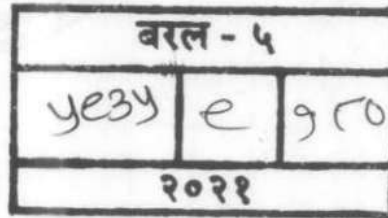 बरल - ५
५९३५ ९ १८०
२०२१